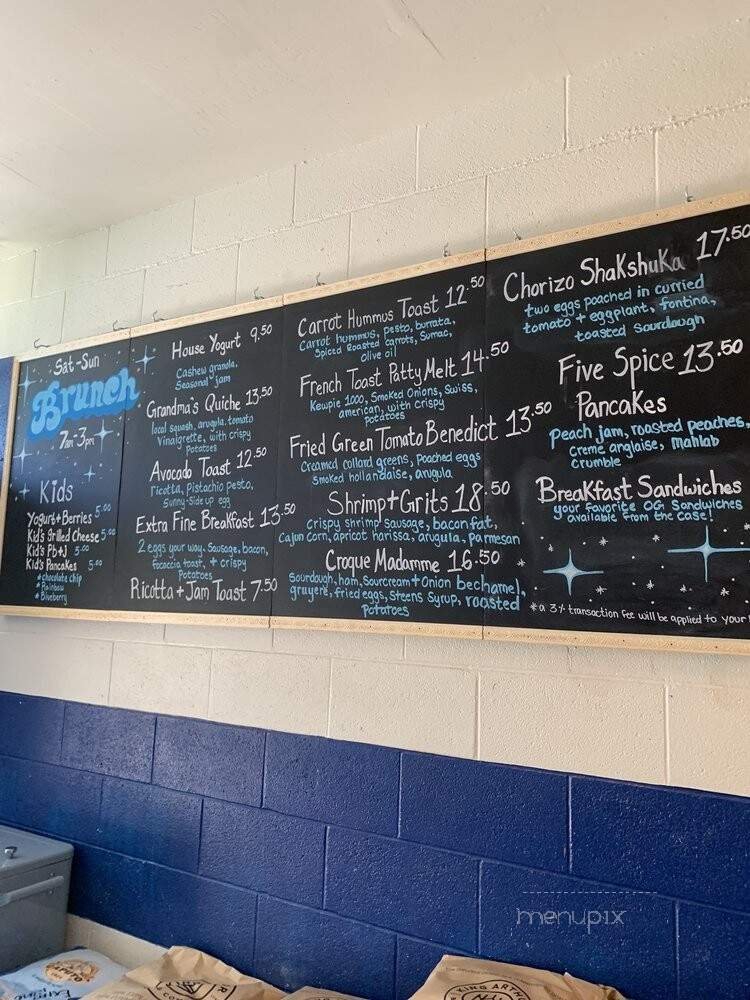 Sat-Sun
Brunch
7am-3pm
Kids
Yogurt+Berries 5.00
Kid's Grilled Cheese 5.00
Kid's Pb+J 5.00
Kid's Pancakes 5.00
*chocolate chip
*Rainbow
*Blueberry
House Yogurt 9.50
Cashew granola,
Seasonal jam
Grandma's Quiche 13.50
local squash, arugula, tomato
Vinaigrette, with crispy
Potatoes
Avocado Toast 12.50
ricotta, Pistachio pesto,
Sunny-Side up egg
Extra Fine Breakfast 13.50
2 eggs your way, Sausage, bacon,
focaccia toast, + crispy
Potatoes
Ricotta + Jam Toast 7.50
Carrot Hummus Toast 12.50
Carrot hummus, pesto, burrata,
Spiced Roasted carrots, Sumac,
olive oil
French Toast Patty Melt 14.50
Kewpie 1000, Smoked Onions, Swiss,
american, with crispy
potatoes
Fried Green Tomato Benedict 13.50
Creamed collard greens, Poached eggs
Smoked hollandaise, arugula
Shrimp+Grits 18.50
Crispy shrimp Sausage, bacon fat,
Cajun Corn, apricot harissa, arugula, parmesan
Croque Madamme 16.50
Sourdough, ham, Sourcream + Onion bechamel,
gruyere, fried eggs, Steens Syrup, roasted
Potatoes
Chorizo Shakshuka 17.50
two eggs poached in curried
tomato + eggplant, fontina,
toasted Sourdough
Five Spice 13.50
Pancakes
Peach jam, roasted peaches,
Creme anglaise, Mahlab
Crumble
Breakfast Sandwiches
your favorite OG Sandwiches
available from the case!
*a 3% transaction fee will be applied to your
menupix
KING ARTHUR